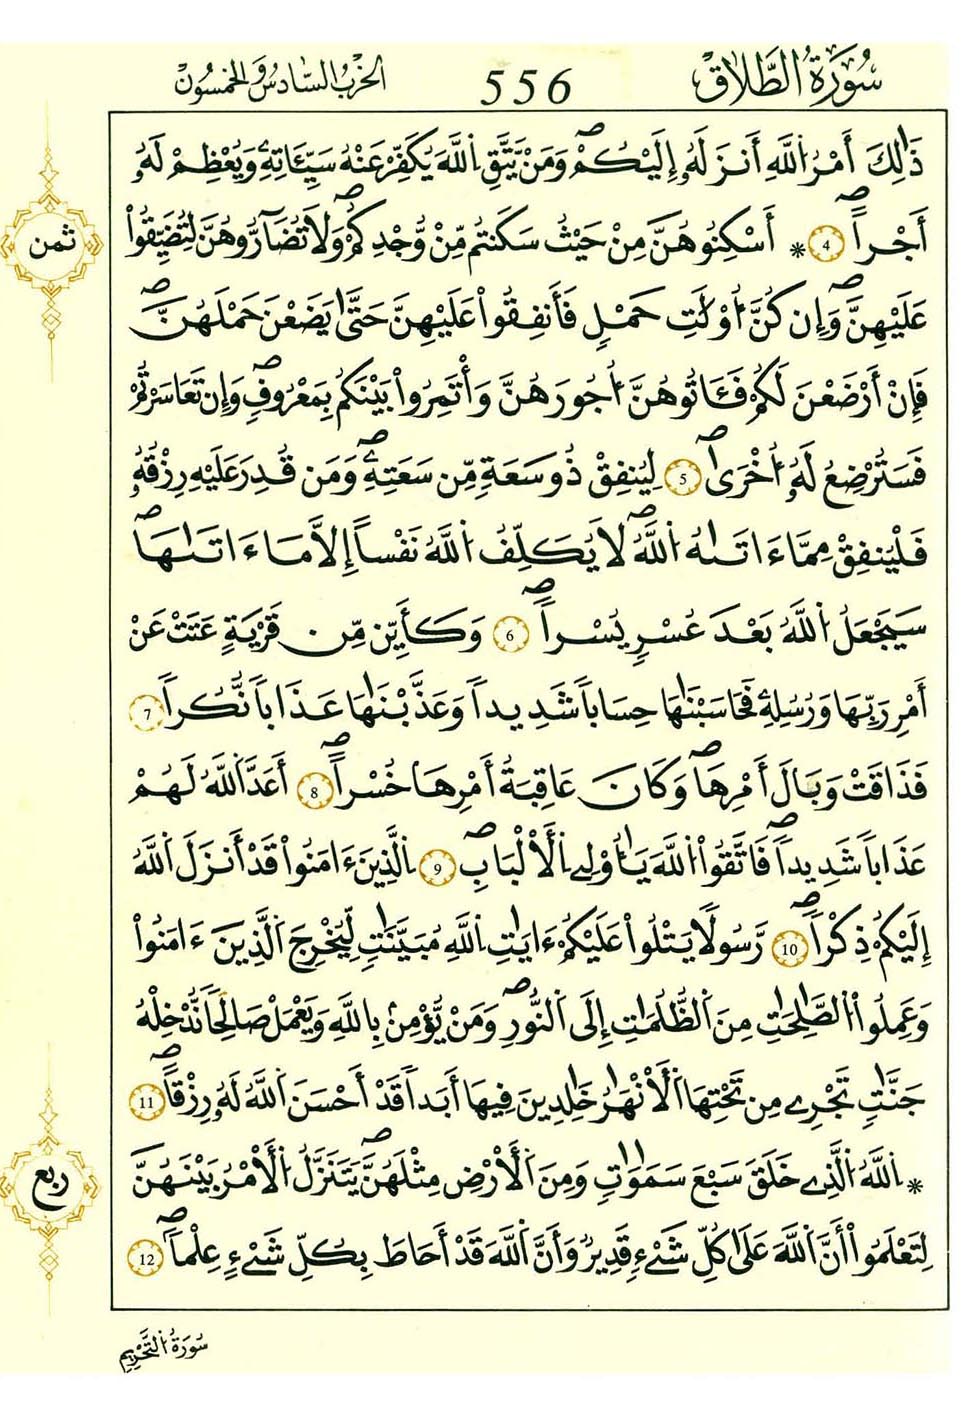 سُورَةُ الطَّلَاقِ 556 الحِزْبُ السَّادِسُ وَالخَمْسُونَ
ذَٰلِكَ أَمْرُ اللَّهِ أَنزَلَهُۥ إِلَيْكُمْۖ وَمَنْ يَّتَّقِ اللَّهَ يُكَفِّرْ عَنْهُ سَيِّـَٔاتِهِۦ وَيُعْظِمْ لَهُۥ
أَجْراًۖ 4 * أَسْكِنُوهُنَّ مِنْ حَيْثُ سَكَنتُم مِّنْ وُّجْدِكُمْۖ وَلَا تُضَآرُّوهُنَّ لِتُضَيِّقُواْ
ثمن
عَلَيْهِنَّۖ وَإِن كُنَّ أُوْلَٰتِ حَمْلٍ فَأَنفِقُواْ عَلَيْهِنَّ حَتَّىٰ يَضَعْنَ حَمْلَهُنَّۖ
فَإِنْ أَرْضَعْنَ لَكُمْ فَـَٔاتُوهُنَّ أُجُورَهُنَّ وَأْتَمِرُواْ بَيْنَكُم بِمَعْرُوفٍۖ وَإِن تَعَاسَرْتُمْ
فَسَتُرْضِعُ لَهُۥ أُخْرَىٰۖ 5 لِيُنفِقْ ذُو سَعَةٍ مِّن سَعَتِهِۦۖ وَمَن قُدِرَ عَلَيْهِ رِزْقُهُۥ
فَلْيُنفِقْ مِمَّآ ءَاتَىٰهُ اللَّهُۖ لَا يُكَلِّفُ اللَّهُ نَفْساً إِلَّا مَآ ءَاتَىٰهَاۖ
سَيَجْعَلُ اللَّهُ بَعْدَ عُسْرٍ يُسْراًۖ 6 وَكَأَيِّن مِّن قَرْيَةٍ عَتَتْ عَنْ
أَمْرِ رَبِّهَا وَرُسُلِهِۦ فَحَاسَبْنَٰهَا حِسَاباً شَدِيداً وَعَذَّبْنَٰهَا عَذَاباً نُّكُراً 7
فَذَاقَتْ وَبَالَ أَمْرِهَاۖ وَكَانَ عَاقِبَةُ أَمْرِهَا خُسْراًۖ 8 أَعَدَّ اللَّهُ لَهُمْ
عَذَاباً شَدِيداًۖ فَاتَّقُواْ اللَّهَ يَٰٓأُوْلِے اِلْأَلْبَٰبِۖ 9 اَلذِينَ ءَامَنُواْ قَدْ أَنزَلَ اَللَّهُ
إِلَيْكُمْ ذِكْراًۖ 10 رَّسُولًا يَتْلُواْ عَلَيْكُمْ ءَايَٰتِ اِللَّهِ مُبَيَّنَٰتٍ لِّيُخْرِجَ اَلذِينَ ءَامَنُواْ
وَعَمِلُواْ اُلصَّٰلِحَٰتِ مِنَ اَلظُّلُمَٰتِ إِلَى اَلنُّورِۖ وَمَنْ يُّؤْمِنۢ بِاللَّهِ وَيَعْمَلْ صَٰلِحاً نُّدْخِلْهُ
جَنَّٰتٍ تَجْرِے مِن تَحْتِهَا اَلْأَنْهَٰرُ خَٰلِدِينَ فِيهَآ أَبَداً قَدْ أَحْسَنَ اَللَّهُ لَهُۥ رِزْقاًۖ 11
* اِللَّهُ اُلذِے خَلَقَ سَبْعَ سَمَٰوَٰتٍ وَمِنَ اَلْأَرْضِ مِثْلَهُنَّۖ يَتَنَزَّلُ اُلْأَمْرُ بَيْنَهُنَّ
ربع
لِتَعْلَمُواْ أَنَّ اَللَّهَ عَلَىٰ كُلِّ شَےْءٍ قَدِيرٌ وَأَنَّ اَللَّهَ قَدْ أَحَاطَ بِكُلِّ شَےْءٍ عِلْماًۖ 12
سُورَةُ التَّحْرِيمِ